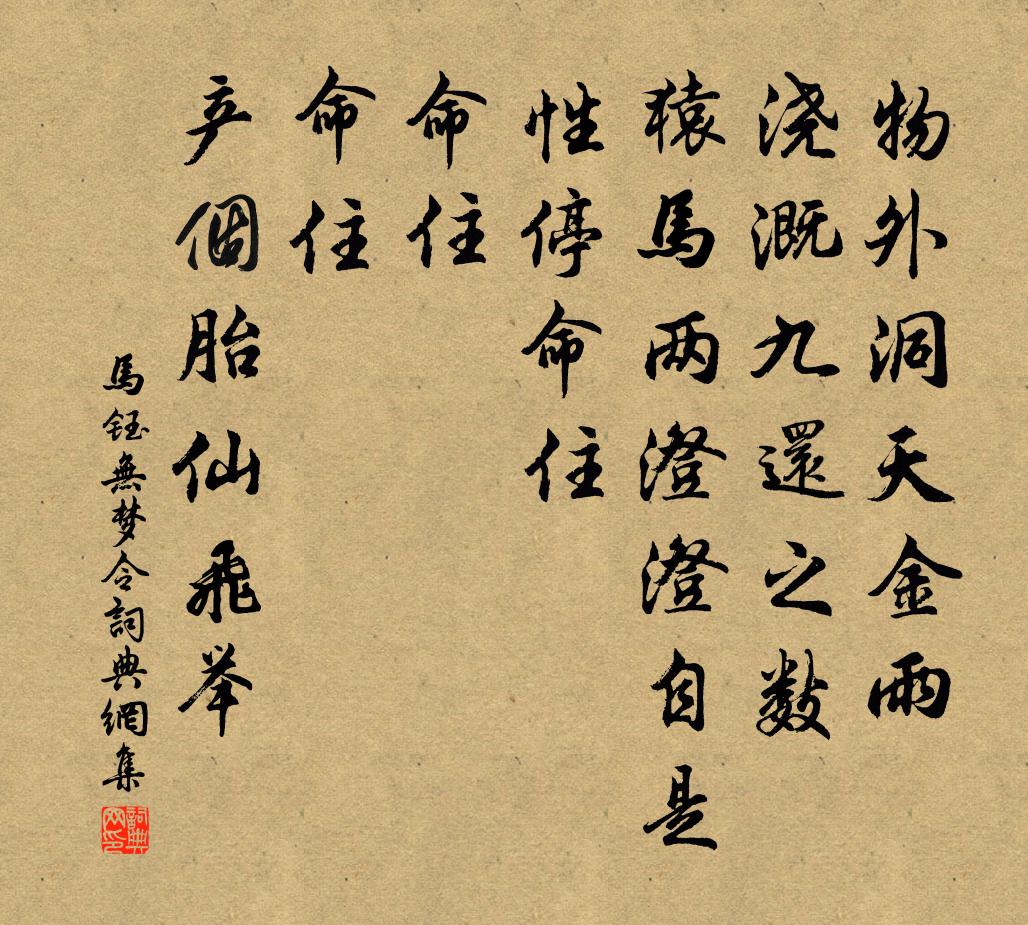 物外洞天金雨
浇溉九還之数
猿馬两澄澄自是
性停命住
命住
命住
产個胎仙飛举
馬钰無梦令詞典網集
詞典网印